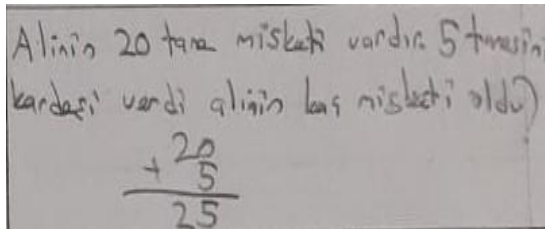 Alinin 20 tane misketi vardır. 5 tanesini
kardeşi verdi alinin kaç misketi oldu?
20
+ 5
25